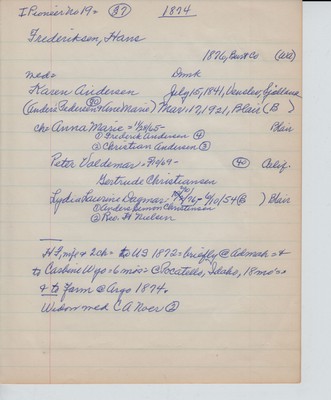 I Pioneer No 19= 37 1874
Frederiksen, Hans
1876, Burt Co (aa)
med= Dnmk
Karen Andersen July 15, 1841,
(Anders Pedersen + Hane Marie) Mar. 17, 1921, Blair (B )
ch: Anna Marie = 11/28/65- Blair
① Frederik Andersen ④
② Christian Andersen ②
Peter Valdemar = 1869- 40 Calif.
Gertrude Christiansen
Lydia Laurine Dagmar = /76= 9/10/54 (B ) Blair
① Anders Simon Christensen
② Rev. H Nielsen
HF, mfr + 2ch = to US 1872 = briefly @ Admah = +
to Carbine Wyo = 6 mos = @ Pocatello, Idaho, 18 mo's =
+ to farm @ Argo 1874.
Widow med C A Noer ②